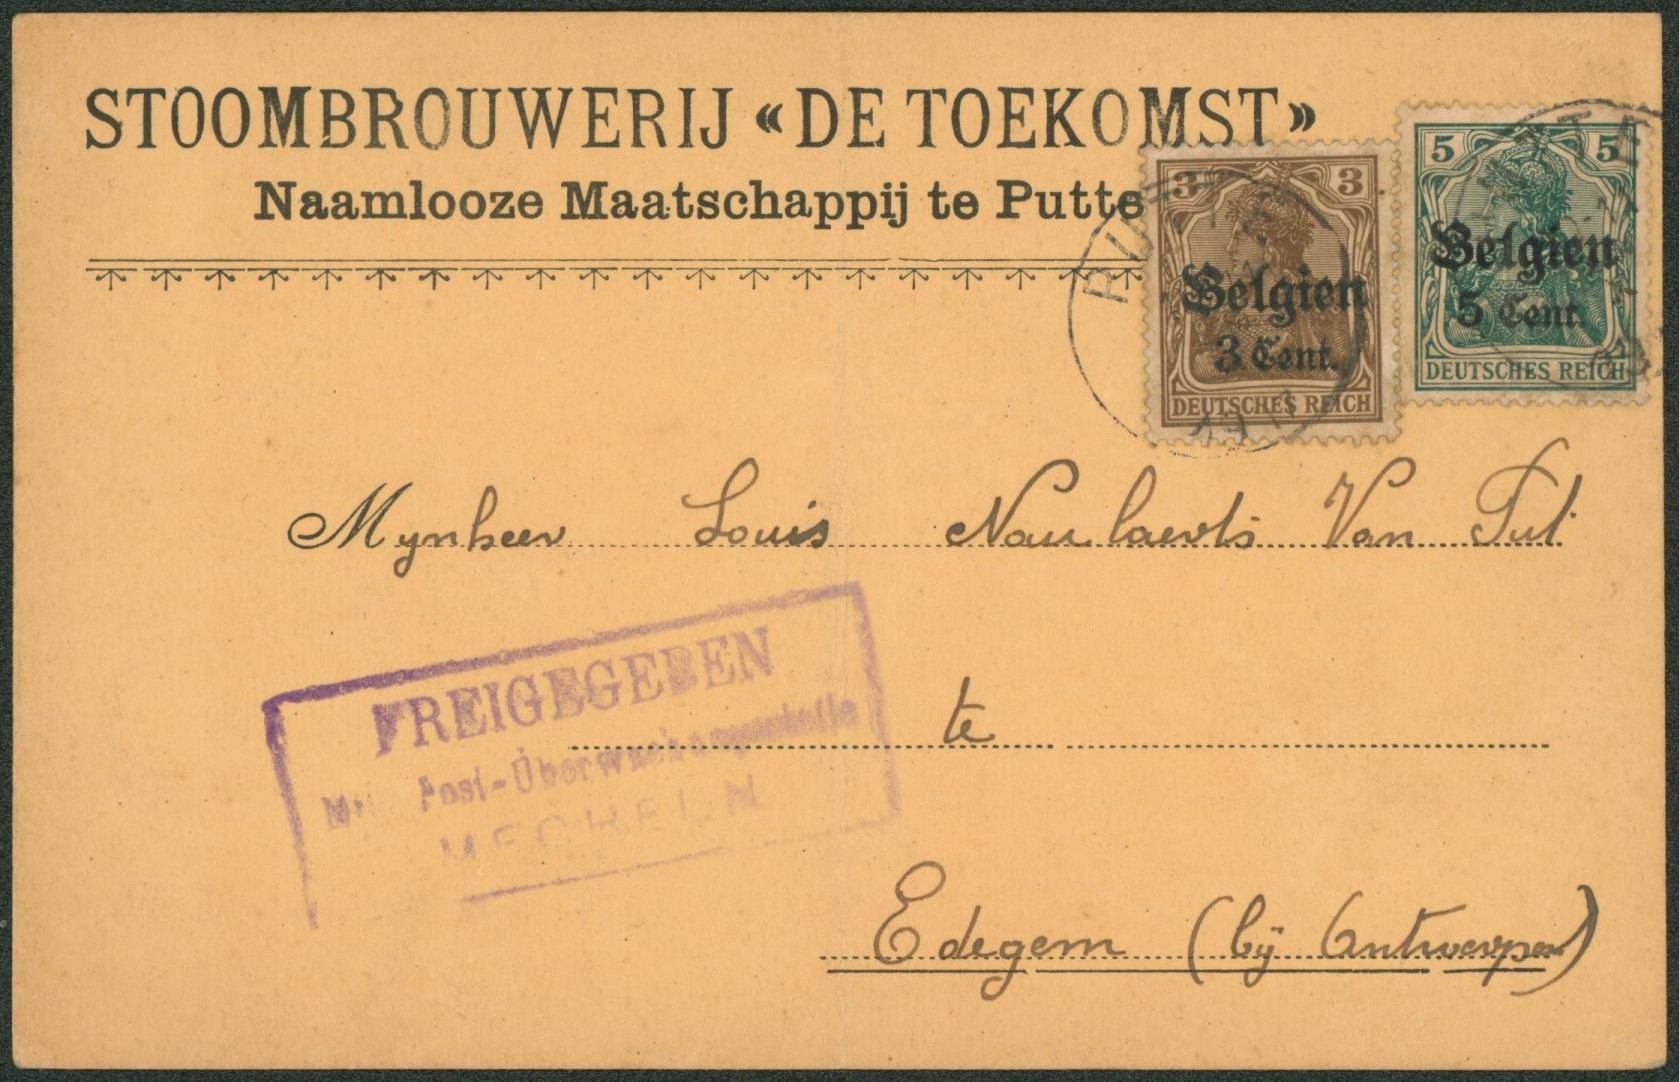 STOOMBROUWERIJ «DE TOEKOMST»
Naamlooze Maatschappij te Putte
3 3
Belgien
3 Cent.
DEUTSCHES REICH
5 5
Belgien
5 Cent.
DEUTSCHES REICH
Mynheer Louis Naulaerts Van Tul
FREIGEGEBEN
Post-Überwachungsstelle
MECHELN
te
Edegem (bij Antwerpen)